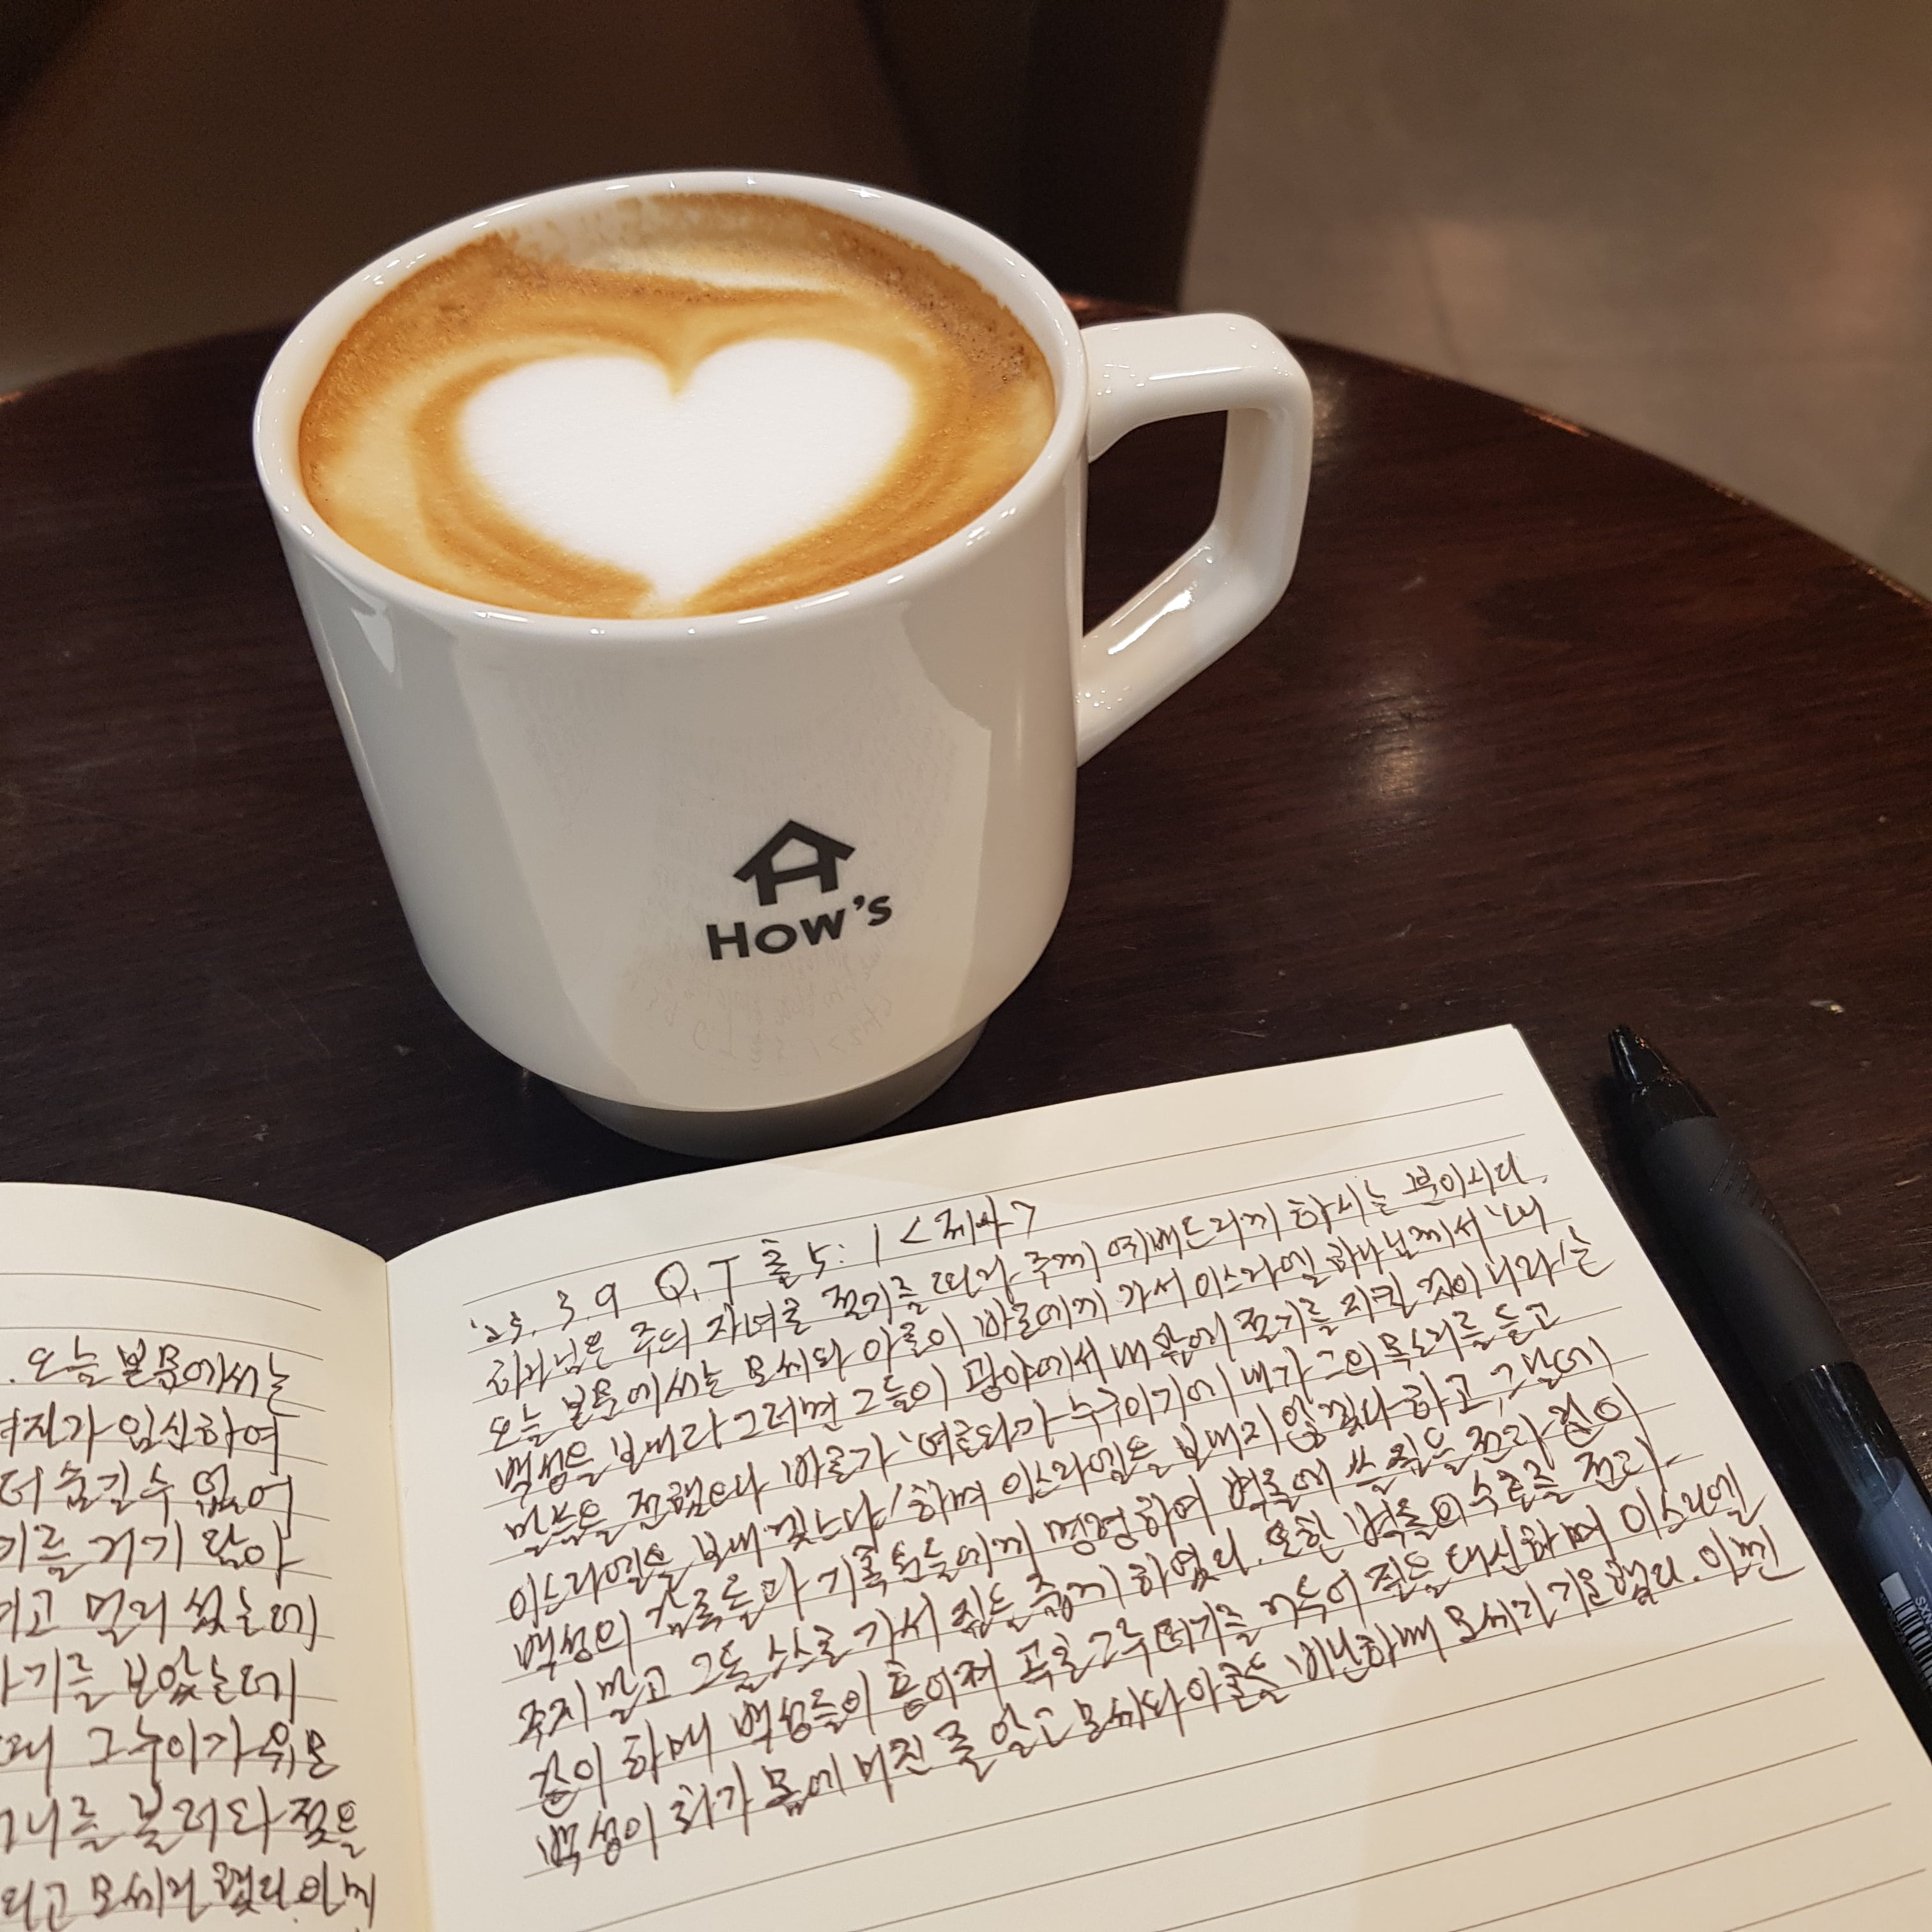 How's
'23. 3. 9 Q.T 출 5: 1 <제사>
하나님은 주의 자녀로 절기를 따라 주께 예배드리게 하시는 분이시다.
오늘 본문에서는 모세와 아론이 바로에게 가서 이스라엘 하나님께서 '내
백성을 보내라 그러면 그들이 광야에서 내 앞에 절기를 지킬 것이니라'는
말씀을 전했으나 바로가 '여호와가 누구이기에 내가 그의 목소리를 듣고
이스라엘을 보내겠느냐' 하며 이스라엘을 보내지 않겠다 하고, 그날에
백성의 감독들과 기록원들에게 명령하여 벽돌에 쓸 짚을 전과 같이
주지 말고 그들 스스로 가서 짚을 줍게 하였다. 또한 벽돌의 수효를 전과
같이 하매 백성들이 흩어져 곡초 그루터기를 거두어 짚을 대신하며 이스라엘
백성이 화가 몸에 미친 줄 알고 모세와 아론을 비난하매 모세가 기도했다. 이땐
. 오늘 본문에서는
여자가 임신하여
더 숨길 수 없어
기를 거기 담아
고 멀리 섰는데
아기를 보았는데
그 누이가 유모
머니를 불러와 젖을
되고 모세라 했다. 이때